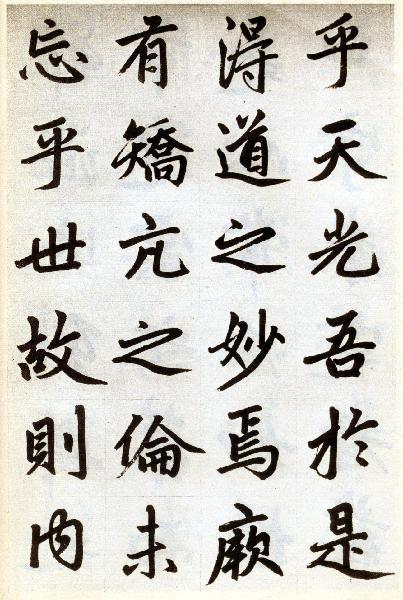 乎天光吾於是
淂道之妙焉厥
有矯亢之倫未
忘乎世故則内